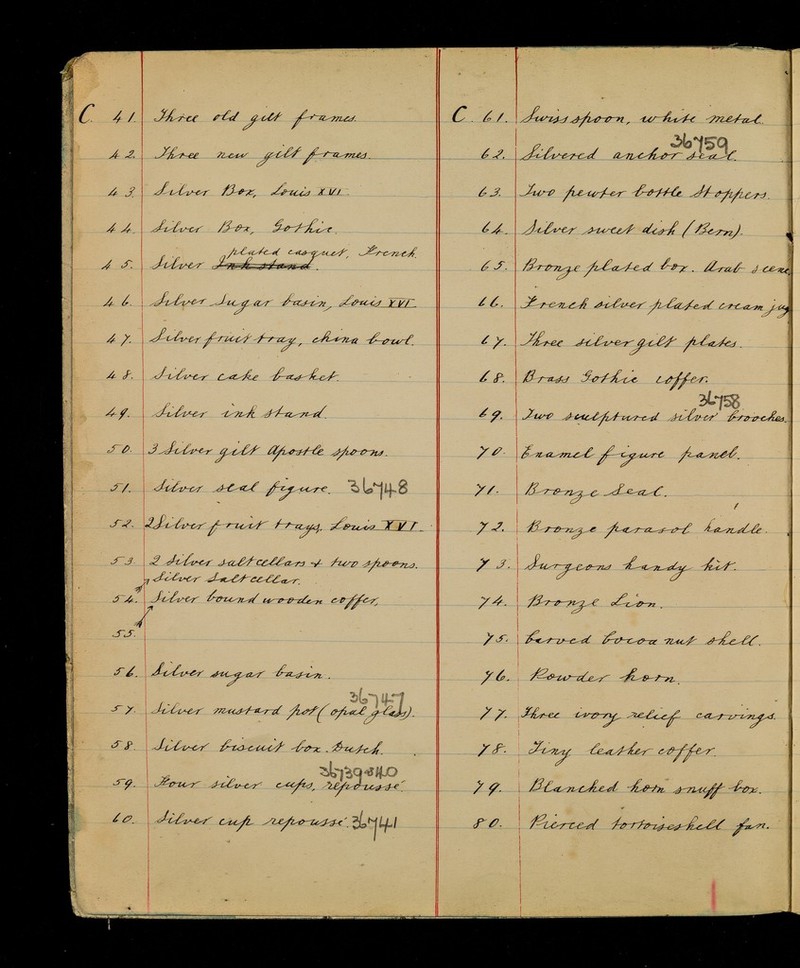 C 41. Three old gilt frames.
42. Three new gilt frames.
43. Silver Box, Louis XVI
44. Silver Box, Gothic.
plated casquet, French.
45. Silver Ink stand.
46. Silver Sugar basin, Louis XVI
47. Silver fruit tray, china bowl.
48. Silver cake basket.
49. Silver ink stand.
50. 3 Silver gilt Apostle spoons.
51. Silver seal figure. 36748
52. 2 Silver fruit trays, Louis XVI.
53. 2 Silver salt cellars & two spoons.
Silver Salt cellar.
54. Silver bound wooden coffer,
55.
56. Silver sugar basin.
36747
57. Silver mustard pot (opal glass).
58. Silver biscuit box. Dutch.
36739+840
59. Four silver cups, repoussé.
60. Silver cup repoussé. 36741
C. 61. Swiss spoon, white metal.
36759
62. Silvered anchor seal.
63. Two pewter bottle Stoppers.
64. Silver sweet dish (Bern).
65. Bronze plated box. Arab scene
66. French silver plated cream jug
67. Three silver gilt plates.
68. Brass Gothic coffer.
36758
69. Two sculptured silver brooches.
70. Enamel figure panel.
71. Bronze Seal.
72. Bronze parasol handle.
73. Surgeons handy kit.
74. Bronze Lion.
75. Carved Cocoa nut shell.
76. Powder horn.
77. Three ivory relief carvings.
78. Tiny leather coffer.
79. Blanched horn snuff box.
80. Pierced tortoiseshell fan.